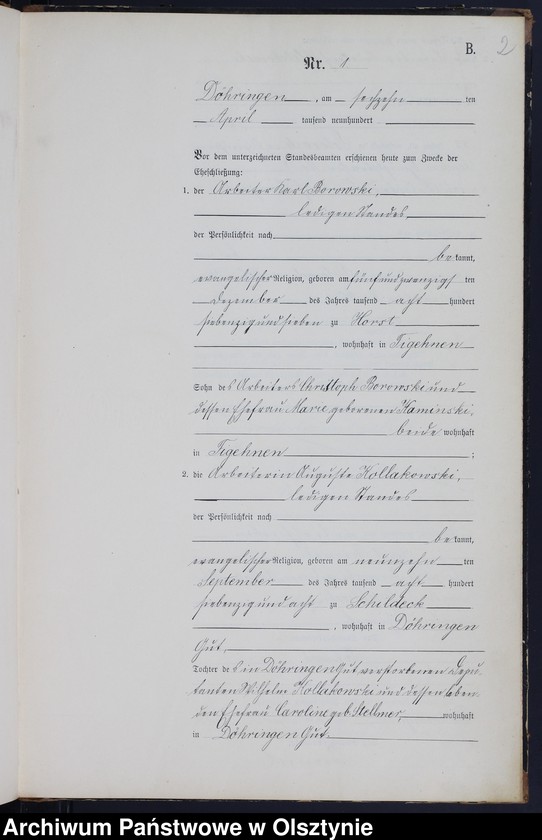 B. 2
Nr. 1
Döhringen, am sechzehn ten
April tausend neunhundert
Vor dem unterzeichneten Standesbeamten erschienen heute zum Zwecke der
Eheschließung:
1. der Arbeiter Karl Borowski,
ledigen Standes
der Persönlichkeit nach
be kannt,
evangelischer Religion, geboren am fünfundzwanzigs ten
Dezember des Jahres tausend acht hundert
siebenzig und sieben zu Horst
, wohnhaft in Tigehnen
Sohn des Arbeiters Christoph Borowski und
dessen Ehefrau Marie geborenen Kaminski,
beide wohnhaft
in Tigehnen ;
2. die Arbeiterin Auguste Kollakowski,
ledigen Standes
der Persönlichkeit nach
be kannt,
evangelischer Religion, geboren am neunzehn ten
September des Jahres tausend acht hundert
siebenzig und acht zu Schildeck
, wohnhaft in Döhringen
Gut
Tochter des in Döhringen Gut verstorbenen Depu
tanten Wilhelm Kollakowski und dessen leben
den Ehefrau Caroline geb. Stellmer, wohnhaft
in Döhringen Gut.
Archiwum Państwowe w Olsztynie